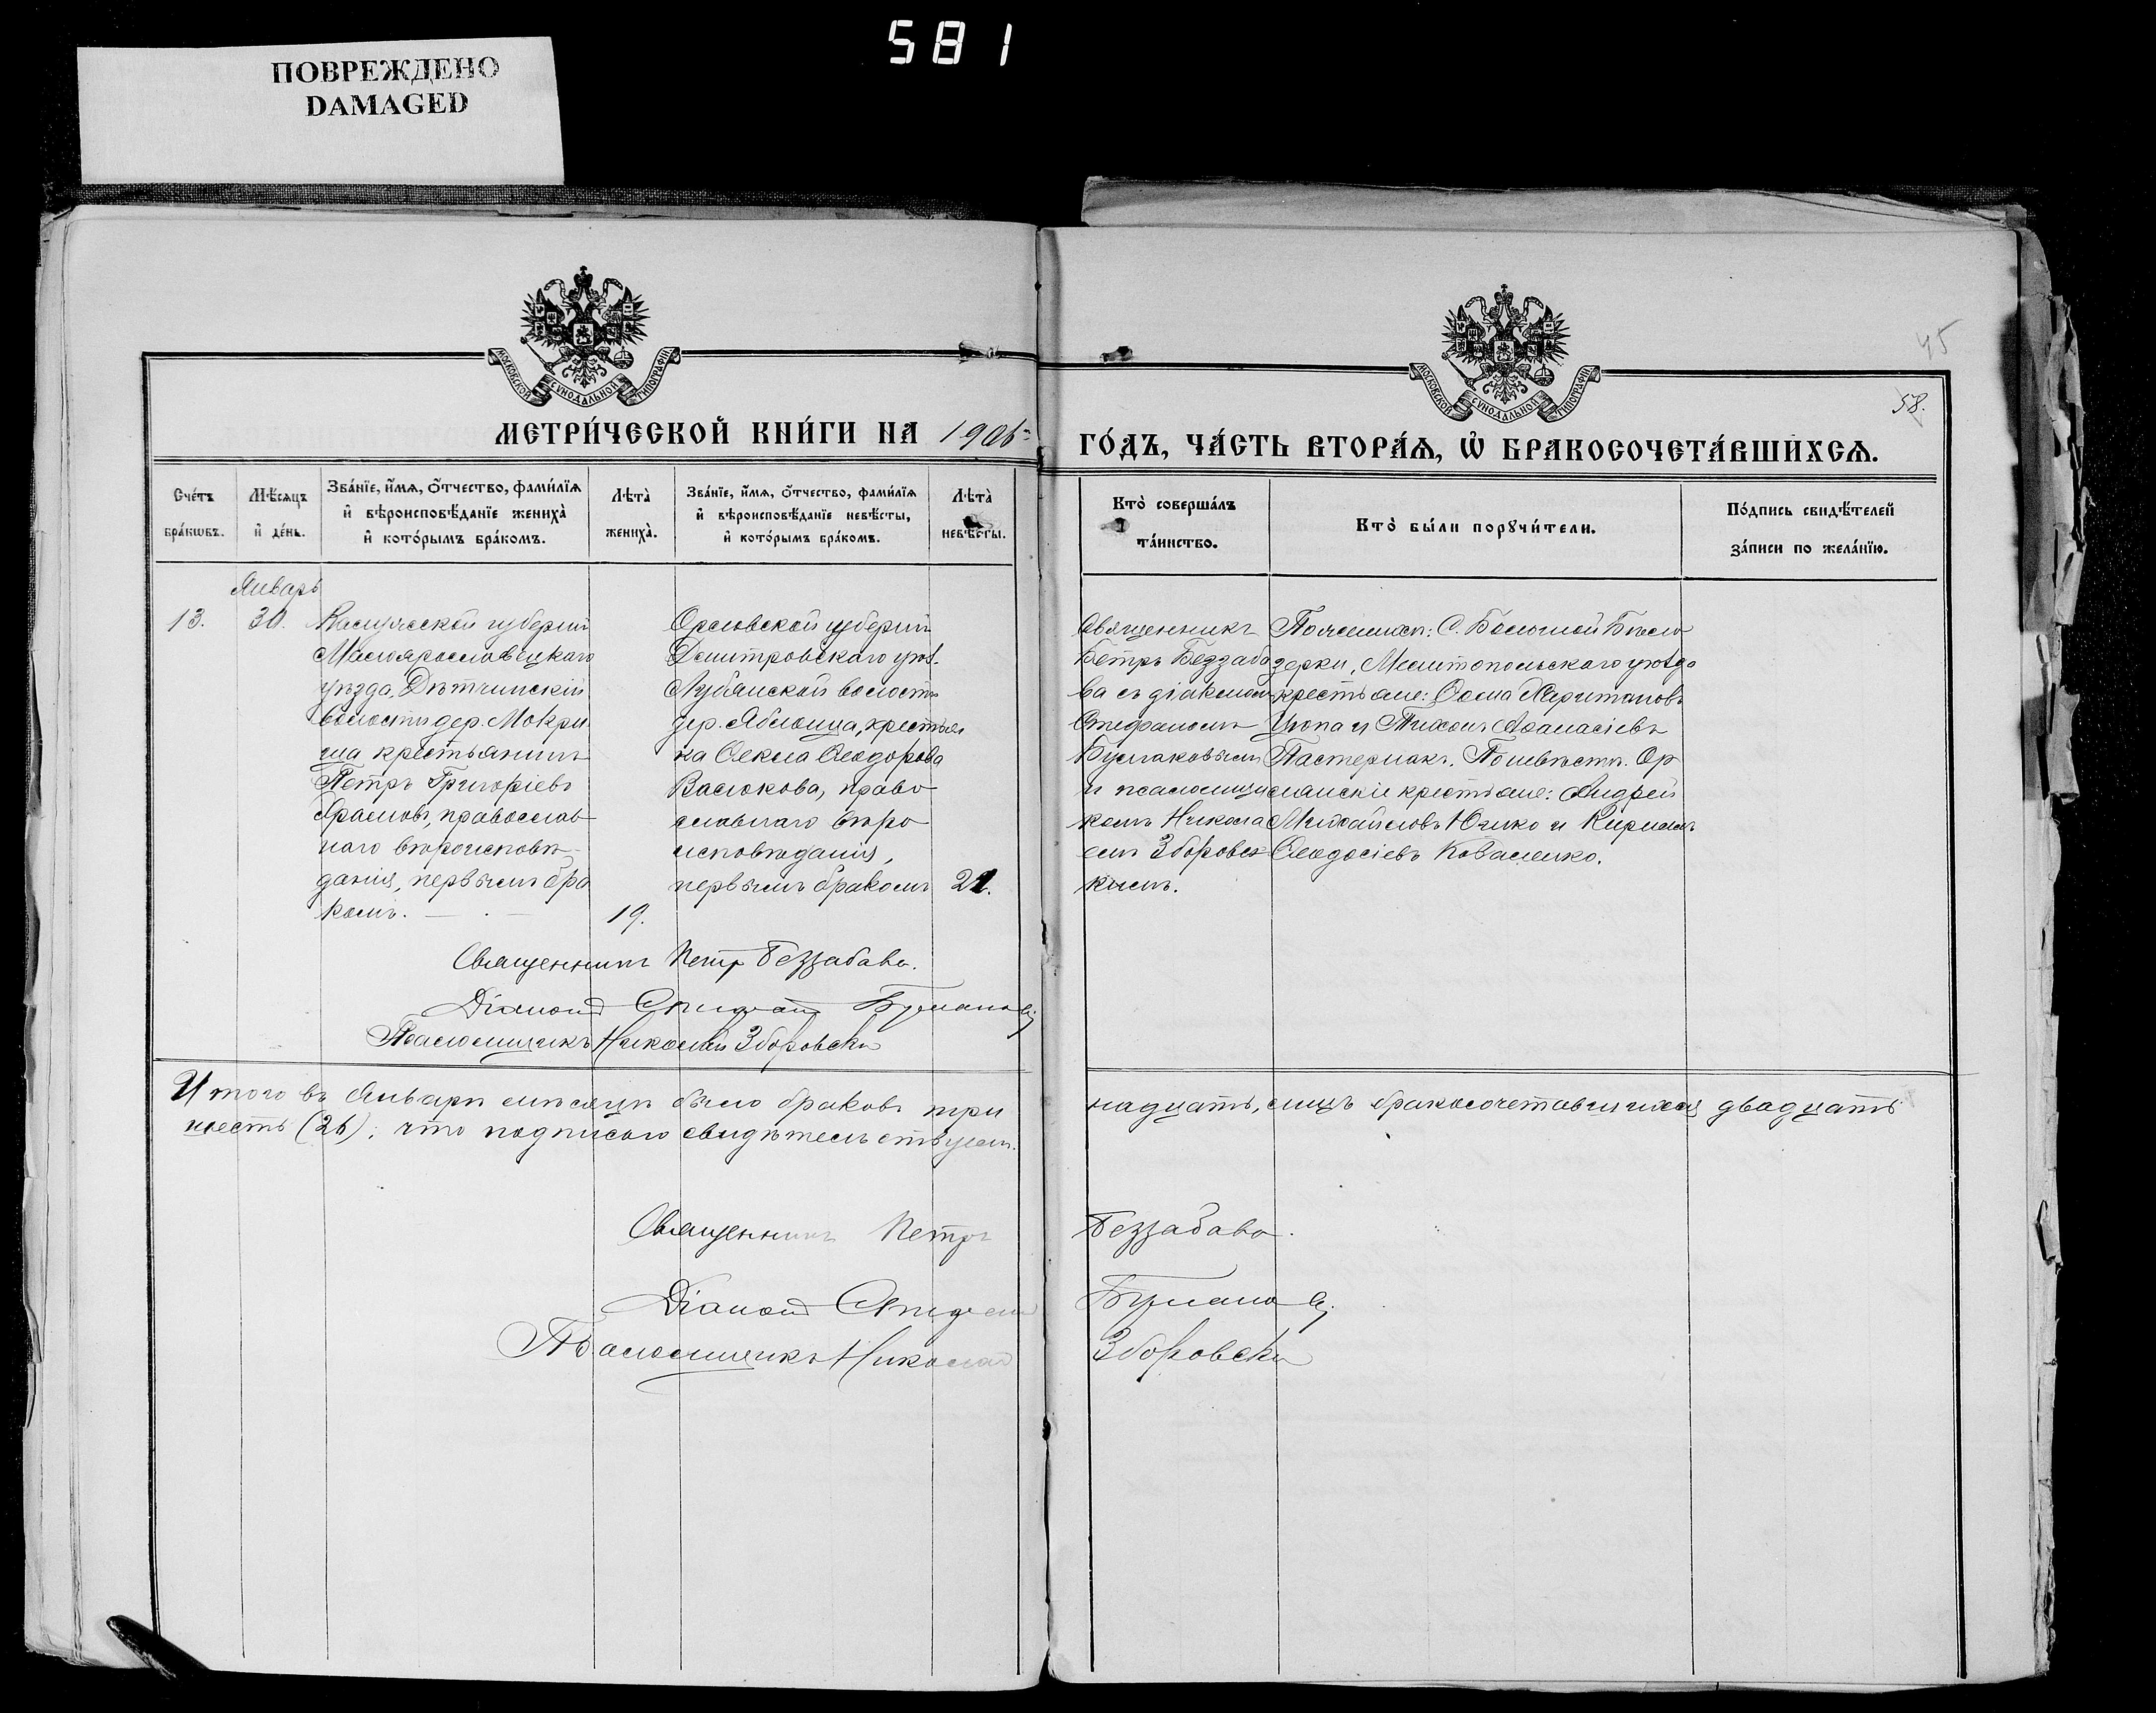 581
ПОВРЕЖДЕНО
DAMAGED
МОСКОВСКОЙ СѴНОДАЛЬНОЙ ТИПОГРАФІИ
МОСКОВСКОЙ СѴНОДАЛЬНОЙ ТИПОГРАФІИ
45
58.
МЕТРИ́ЧЕСКОЙ КНИ́ГИ НА 1906
ГО́ДЪ, ЧА́СТЬ ВТОРА́Ѧ, Ѡ҆ БРАКОСОЧЕТА́ВШИХСѦ.
Сче́тъ
бра́кѡвъ.
Мѣ́сѧцъ
и҆ де́нь.
Зва́нїе, и҆́мѧ, ѻ҆́тчество, фами́лїѧ
и҆ вѣроисповѣ́данїе жениха̀
и҆ кото́рымъ бра́комъ.
Лѣта̀
жениха̀.
Зва́нїе, и҆́мѧ, ѻ҆́тчество, фами́лїѧ
и҆ вѣроисповѣ́данїе невѣ́сты,
и҆ кото́рымъ бра́комъ.
Лѣта̀
невѣ́сты.
Кто̀ соверша́лъ
та́инство.
Кто̀ бы́ли порꙋчи́тели.
По́дпись свидѣ́телей
за́писи по жела́нїю.
Январь
13.
30.
Калужской губерніи
Малоярославецкаго
уѣзда, Дѣтчинскій
волости дер. Мокри
ща крестьянинъ
Петръ Григоріевъ
Храмовъ, православ
наго вѣроисповѣ-
данія, первымъ бра
комъ.
19.
Орловской губерніи
Дмитровскаго уѣз.
Лубянской волости
дер. Яблонца, крестьян
ка Ѳекла Ѳеодорова
Васюкова, право
славнаго вѣро
исповѣданія,
первымъ бракомъ
21.
Священникъ
Петръ Беззабо
ва съ діакономъ
Стефаномъ
Бумаковымъ
и псаломщи
комъ Никола
емъ Зборовск
кимъ.
По женихѣ: С. Большой Бѣло
зерки, Мелитопольскаго уѣзда
крестьяне: Ѳома Харитоновъ
Цюпа и Тихонъ Аѳанасіевъ
Пастернакъ. По невѣстѣ. Ор
лянскіе крестьяне: Андрей
Михайловъ Юхно и Кириллъ
Ѳеодосіевъ Коваленко.
Священникъ Петръ Беззабава.
Діаконъ Стефанъ Бумаковъ
Псаломщикъ Николай Зборовскій
Итого въ Январѣ мѣсяцѣ было браковъ три
надцать, лицъ бракосочетавшихся двадцать
шесть (26); что подписью свидѣтельствуемъ.
Священникъ Петръ Беззабава.
Діаконъ Стефанъ Бумаковъ
Псаломщикъ Николай Зборовскій